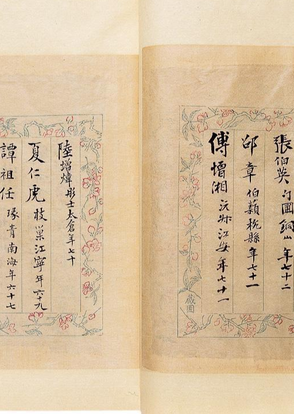 張伯英 勺圃 銅山 年七十二
邵章 伯絅 杭縣 年七十一
傅增湘 沅叔 江安 年七十一
藏園
陸增煒 彤士 太倉 年七十
夏仁虎 枝巢 江寧 年六十九
譚祖任 瑑青 南海 年六十七